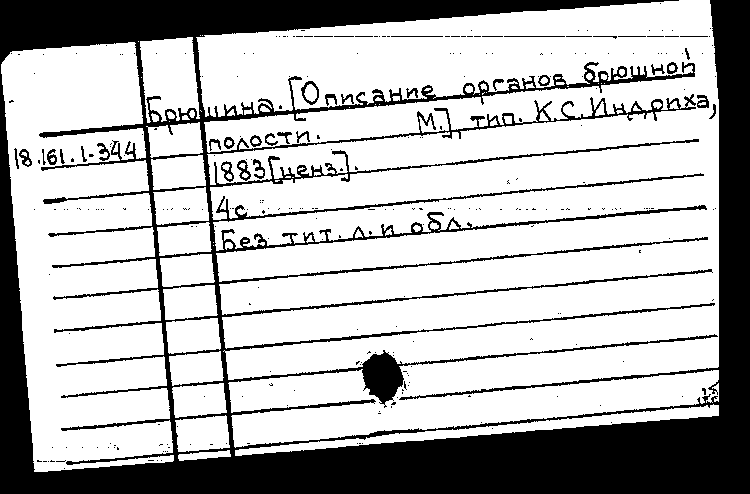 Брюшина. [Описание органов брюшной
полости. М.], тип. К.С. Индриха,
18.161.1-344
1883 [ценз.].
4 с.
Без тит. л. и обл.